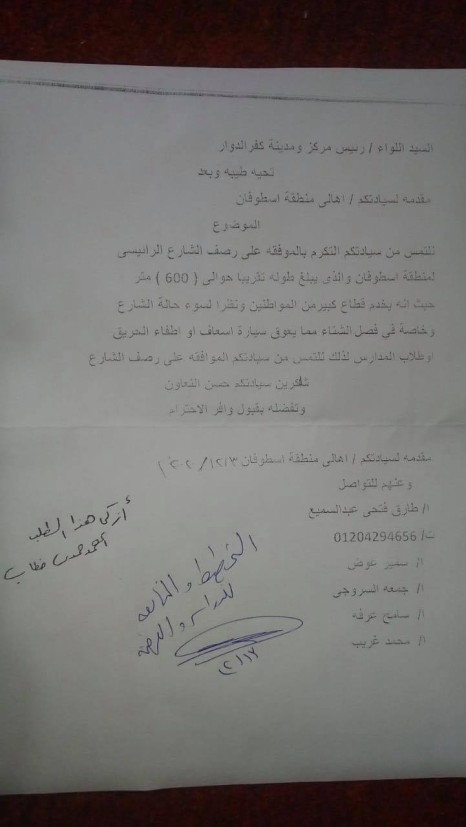 السيد اللواء / رئيس مركز ومدينة كفرالدوار
تحيه طيبه وبعد
مقدمه لسيادتكم / اهالى منطقة اسطوفان
الموضوع
نلتمس من سيادتكم التكرم بالموفقه على رصف الشارع الرانيسى
لمنطقة اسطوفان والذى يبلغ طوله تقريبا حوالى ( 600 ) متر
حيث انه يخدم قطاع كبيرمن المواطنين ونظرا لسوء حالة الشارع
وخاصة فى فصل الشتاء مما يعوق سيارة اسعاف او اطفاء الحريق
اوطلاب المدارس لذلك نلتمس من سيادتكم الموافقه على رصف الشارع
شاكرين سيادتكم حسن التعاون
وتفضله بقبول وافر الاحترام
مقدمه لسيادتكم / اهالى منطقة اسطوفان
وعنهم للتواصل
ا/ طارق فتحى عبدالسميع
ت/ 01204294656
ا/ سمير عوض
ا/ جمعه السروجى
ا/ سامح عرفه
ا/ محمد غريب
أزكى هذا الطلب
التخطيط والمتابعه
للدراسه والعرض